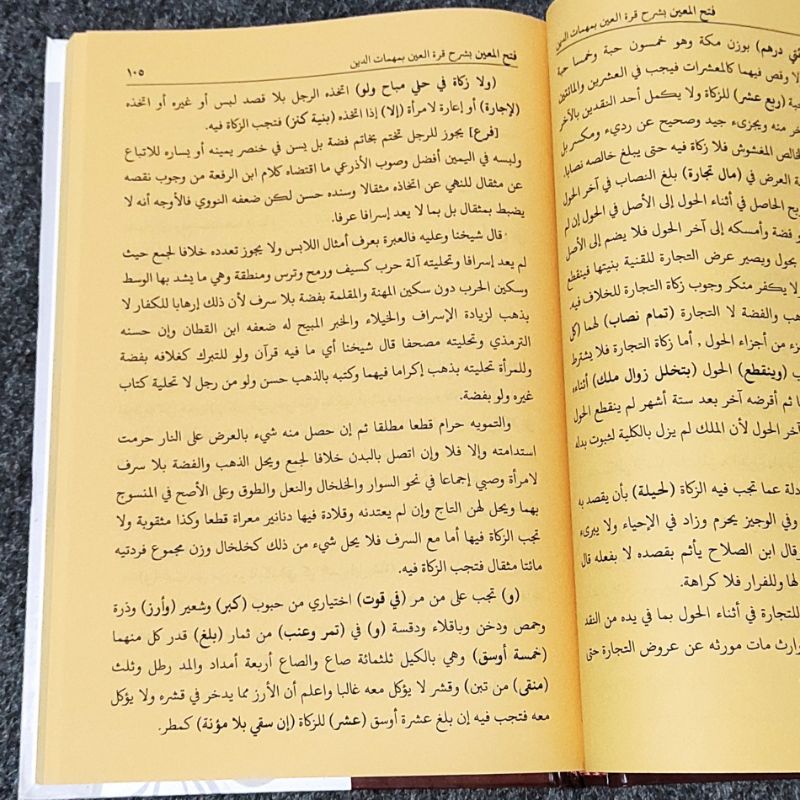 فتح المعين بشرح قرة العين بمهمات الدين
درهم) بوزن مكة وهو خمسون حبة وخمسا حبة
وقص فيهما كالمعشرات فيجب في العشرين والمائتين
(ربع عشر) للزكاة ولا يكمل أحد النقدين بالآخر
منه ويجزىء جيد وصحيح عن رديء ومكسر بل
المغشوش فلا زكاة فيه حتى يبلغ خالصه نصابا.
العرض في (مال تجارة) بلغ النصاب في آخر الحول
الحاصل في أثناء الحول إلى الأصل في الحول إن لم
فضة وأمسكه إلى آخر الحول فلا يضم إلى الأصل
بحول ويصير عرض التجارة للقنية بنيتها فينقطع
لا يكفر منكر وجوب زكاة التجارة للخلاف فيه.
والفضة لا التجارة (تمام نصاب) لهما (كل
من أجزاء الحول , أما زكاة التجارة فلا يشترط
(وينقطع) الحول (بتخلل زوال ملك) أثناءه
ثم أقرضه آخر بعد ستة أشهر لم ينقطع الحول
آخر الحول لأن الملك لم يزل بالكلية لثبوت بدله
عما تجب فيه الزكاة (لحيلة) بأن يقصد به
وفي الوجيز يحرم وزاد في الإحياء ولا يبرىء
وقال ابن الصلاح يأثم بقصده لا بفعله قال
لها وللفرار فلا كراهة.
للتجارة في أثناء الحول بما في يده من النقد
وارث مات مورثه عن عروض التجارة حتى
فتح المعين بشرح قرة العين بمهمات الدين
١٠٥
(ولا زكاة في حلي مباح ولو) اتخذه الرجل بلا قصد لبس أو غيره أو اتخذه
(لإجارة) أو إعارة لامرأة (إلا) إذا اتخذه (بنية كنز) فتجب الزكاة فيه.
[فرع] يجوز للرجل تختم بخاتم فضة بل يسن في خنصر يمينه أو يساره للاتباع
ولبسه في اليمين أفضل وصوب الأذرعي ما اقتضاه كلام ابن الرفعة من وجوب نقصه
عن مثقال للنهي عن اتخاذه مثقالا وسنده حسن لكن ضعفه النووي فالأوجه أنه لا
يضبط بمثقال بل بما لا يعد إسرافا عرفا.
قال شيخنا وعليه فالعبرة بعرف أمثال اللابس ولا يجوز تعدده خلافا لجمع حيث
لم يعد إسرافا وتحليته آلة حرب كسيف ورمح وترس ومنطقة وهي ما يشد بها الوسط
وسكين الحرب دون سكين المهنة والمقلمة بفضة بلا سرف لأن ذلك إرهابا للكفار لا
بذهب لزيادة الإسراف والخيلاء والخبر المبيح له ضعفه ابن القطان وإن حسنه
الترمذي وتحليته مصحفا قال شيخنا أي ما فيه قرآن ولو للتبرك كغلافه بفضة
وللمرأة تحليته بذهب إكراما فيهما وكتبه بالذهب حسن ولو من رجل لا تحلية كتاب
غيره ولو بفضة.
والتمويه حرام قطعا مطلقا ثم إن حصل منه شيء بالعرض على النار حرمت
استدامته وإلا فلا وإن اتصل بالبدن خلافا لجمع ويحل الذهب والفضة بلا سرف
لامرأة وصبي إجماعا في نحو السوار والخلخال والنعل والطوق وعلى الأصح في المنسوج
بهما ويحل لهن التاج وإن لم يعتدنه وقلادة فيها دنانير معراة قطعا وكذا مثقوبة ولا
تجب الزكاة فيها أما مع السرف فلا يحل شيء من ذلك كخلخال وزن مجموع فردتيه
مائتا مثقال فتجب الزكاة فيه.
(و) تجب على من مر (في قوت) اختياري من حبوب (كبر) وشعير (وأرز) وذرة
وحمص ودخن وباقلاء ودقسة (و) في (تمر وعنب) من ثمار (بلغ) قدر كل منهما
(خمسة أوسق) وهي بالكيل ثلثمائة صاع والصاع أربعة أمداد والمد رطل وثلث
(منقى) من تبن) وقشر لا يؤكل معه غالبا واعلم أن الأرز مما يدخر في قشره ولا يؤكل
معه فتجب فيه إن بلغ عشرة أوسق (عشر) للزكاة (إن سقي بلا مؤنة) كمطر.